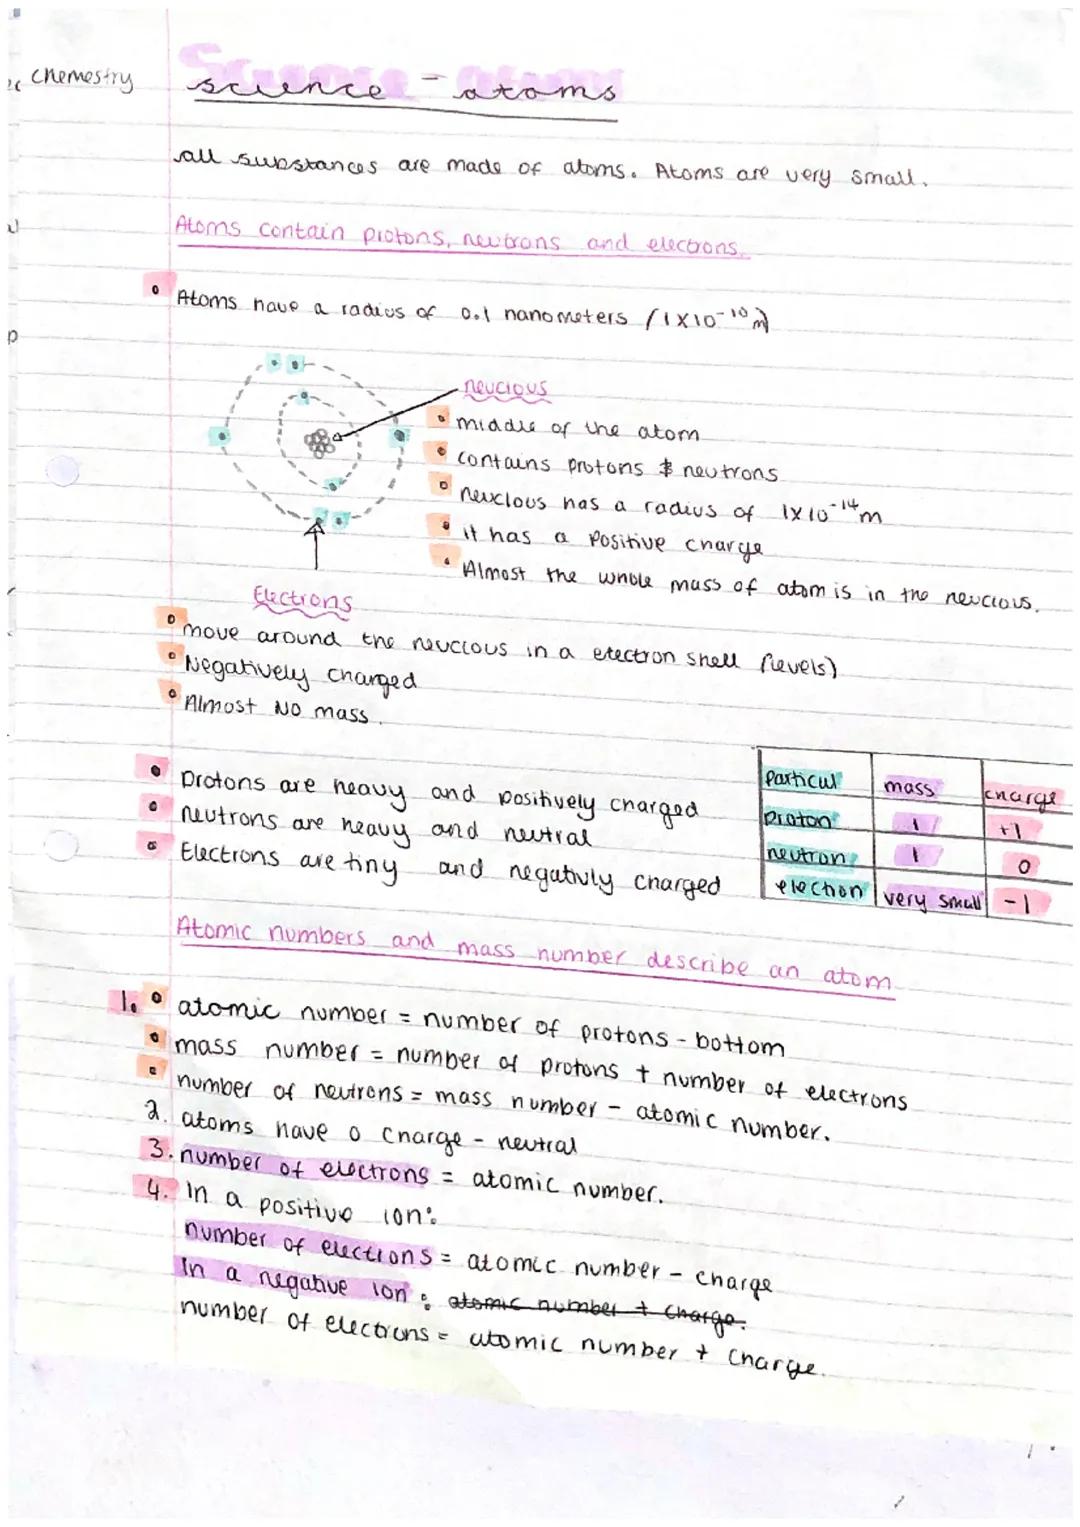 chemestry
science - atoms
all substances are made of atoms. Atoms are very small.
Atoms contain protons, neutrons and electrons.
Atoms have a radius of 0.1 nanometers (1x10⁻¹⁰m)
neucious
middle of the atom
contains protons & neutrons
neuclous has a radius of 1x10⁻¹⁴m
it has a positive charge
Almost the whole mass of atom is in the neucious.
Electrons
move around the neucious in a electron shell (levels)
Negatively charged
Almost NO mass.
Protons are heavy and positively charged
neutrons are heavy and neutral
Electrons are tiny and negativly charged
particul mass charge
proton 1 +1
neutron 1 0
electron very small -1
Atomic numbers and mass number describe an atom
1. atomic number = number of protons - bottom
mass number = number of protons + number of electrons
number of neutrons = mass number - atomic number.
2. atoms have 0 charge - neutral
3. number of electrons = atomic number.
4. In a positive ion:
number of electrons = atomic number - charge
In a negative ion: atomic number + charge.
number of electrons = atomic number + charge.